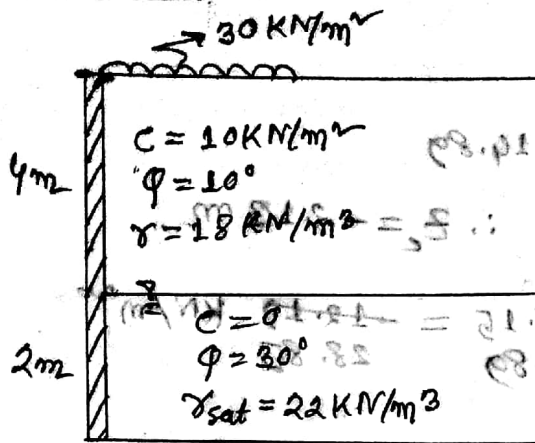 30 KN/m²
4m
C = 10KN/m²
φ = 10°
γ = 18 KN/m3
2m
C = 0
φ = 30°
γsat = 22 KN/m3